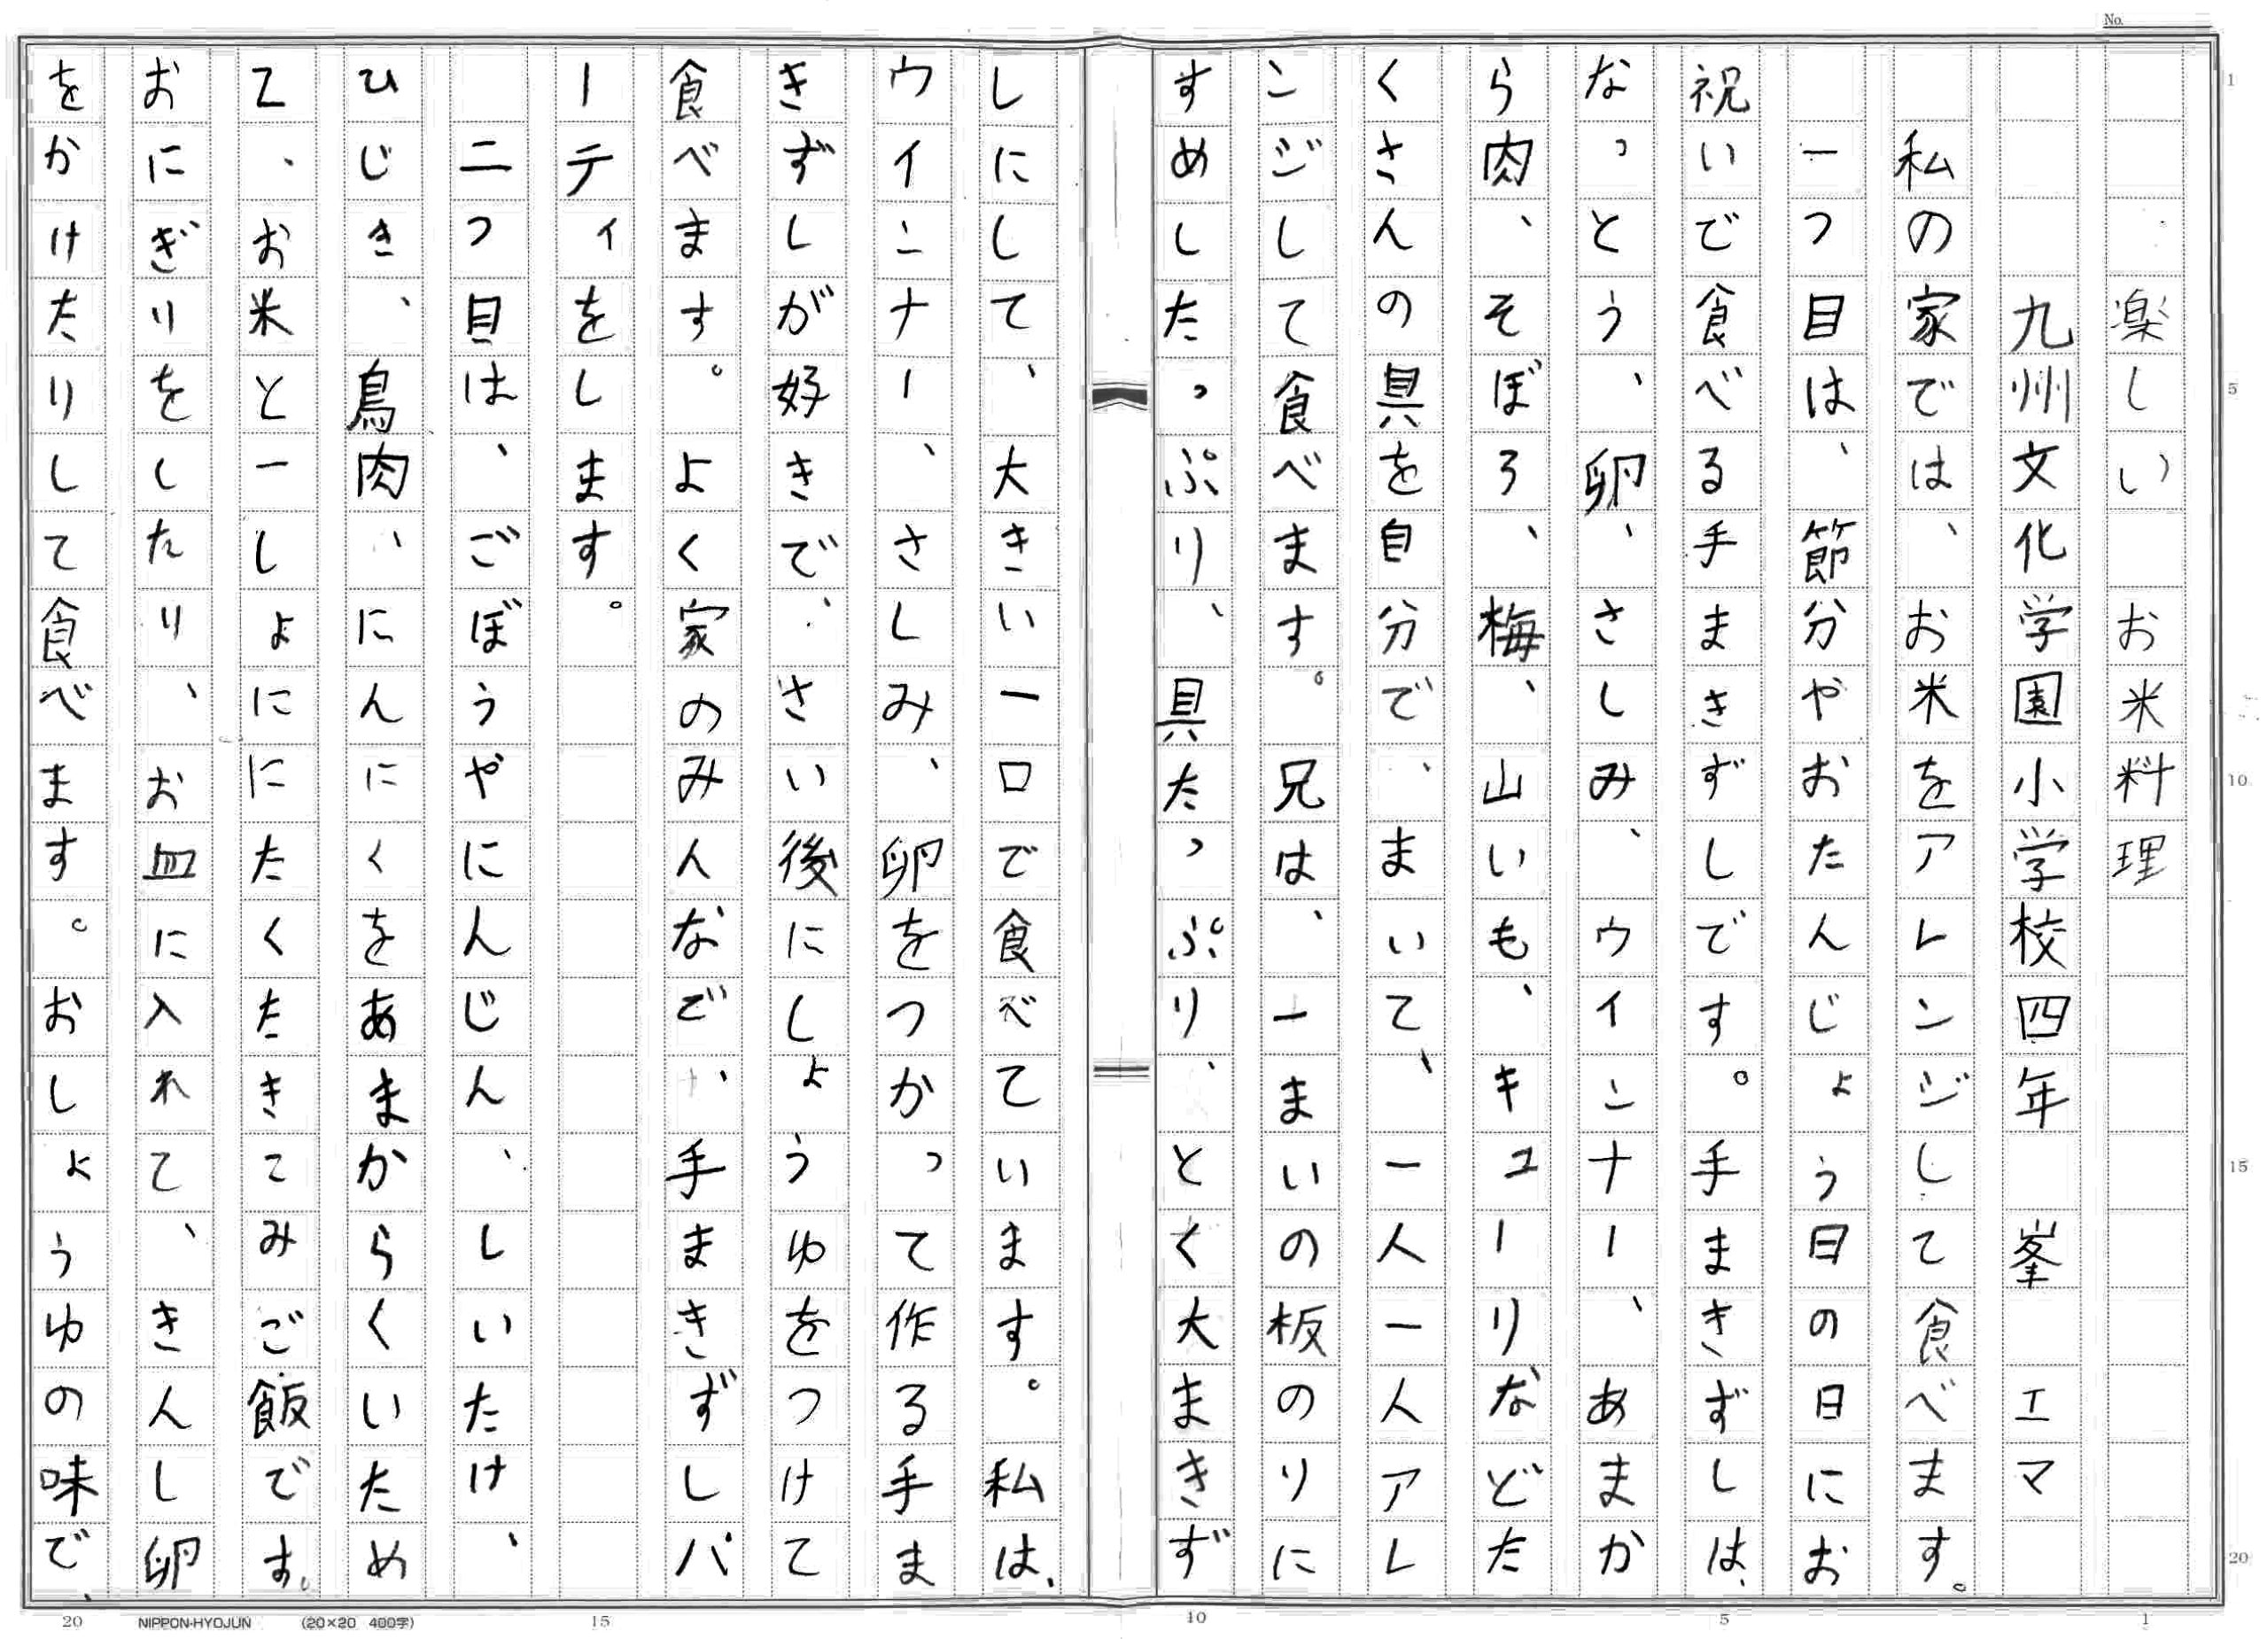 No.
楽しい　お米料理
九州文化学園小学校四年　峯　エマ
私の家では、お米をアレンジして食べます。
一つ目は、節分やおたんじょう日の日にお
祝いで食べる手まきずしです。手まきずしは、
なっとう、卵、さしみ、ウインナー、あまか
ら肉、そぼろ、梅、山いも、キューリなどた
くさんの具を自分で、まいて、一人一人アレ
ンジして食べます。兄は、一まいの板のりに
すめしたっぷり、具たっぷり、とく大まきず
しにして、大きい一口で食べています。私は、
ウインナー、さしみ、卵をつかって作る手ま
きずしが好きで、さい後にしょうゆをつけて
食べます。よく家のみんなで、手まきずしパ
ーティをします。
二つ目は、ごぼうやにんじん、しいたけ、
ひじき、鳥肉、にんにくをあまからくいため
て、お米と一しょににたくたきこみご飯です。
おにぎりをしたり、お皿に入れて、きんし卵
をかけたりして食べます。おしょうゆの味で、
1
5
10
15
20
20
NIPPON-HYOJUN (20×20 400字)
15
10
5
1